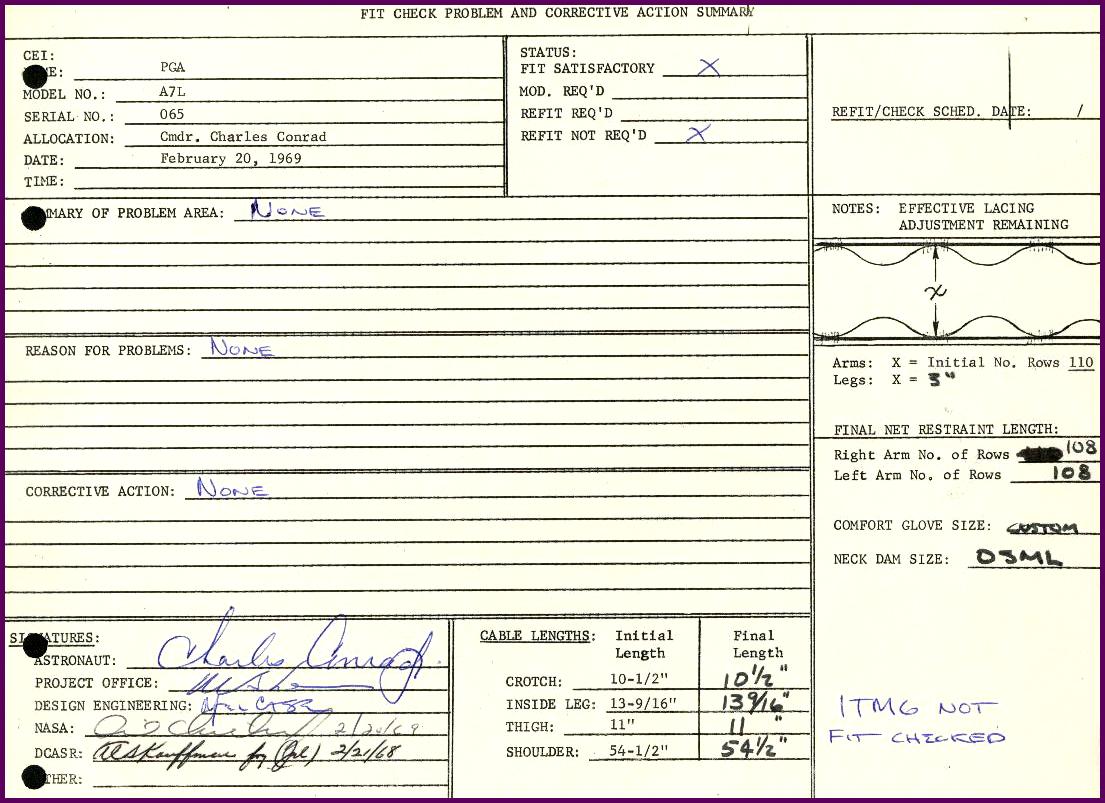 FIT CHECK PROBLEM AND CORRECTIVE ACTION SUMMARY
CEI:
E: PGA
MODEL NO.: A7L
SERIAL NO.: 065
ALLOCATION: Cmdr. Charles Conrad
DATE: February 20, 1969
TIME:
STATUS:
FIT SATISFACTORY X
MOD. REQ'D
REFIT REQ'D
REFIT NOT REQ'D X
REFIT/CHECK SCHED. DATE: /
MARY OF PROBLEM AREA: NONE
REASON FOR PROBLEMS: NONE
CORRECTIVE ACTION: NONE
NOTES: EFFECTIVE LACING
ADJUSTMENT REMAINING
x
Arms: X = Initial No. Rows 110
Legs: X = 3"
FINAL NET RESTRAINT LENGTH:
Right Arm No. of Rows 108
Left Arm No. of Rows 108
COMFORT GLOVE SIZE: CUSTOM
NECK DAM SIZE: OSML
SI ATURES:
ASTRONAUT: Charles Conrad Jr.
PROJECT OFFICE:
DESIGN ENGINEERING:
NASA: 2/20/69
DCASR: Kauffman for 2/21/68
THER:
CABLE LENGTHS: Initial Length Final Length
CROTCH: 10-1/2" 10 1/2"
INSIDE LEG: 13-9/16" 13 9/16"
THIGH: 11" 11"
SHOULDER: 54-1/2" 54 1/2"
ITMG NOT
FIT CHECKED